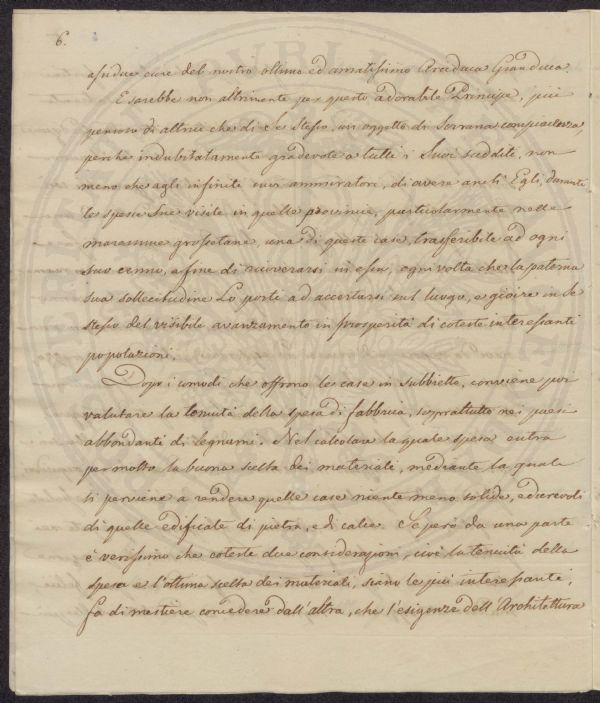 6.
assidue cure del nostro ottimo ed amatissimo Arciduca Granduca.
E sarebbe non altrimente per questo adorabile Principe, più
pensoso di altrui che di Se stesso, un oggetto di Sovrana compiacenza,
perche indubitatamente gradevole a tutti i Suoi sudditi, non
meno che agli infiniti suoi ammiratori, di avere anch' Egli, durante
le spesse Sue visite in quelle provincie, particolarmente nelle
maremme grossetane, una di queste case, trasferibile ad ogni
Suo cenno, a fine di ricoverarsi in essa, ogni volta che la paterna
sua sollecitudine Lo porti ad accertarsi sul luogo, e gioire in Se
stesso del visibile avanzamento in prosperità di coteste interessanti
popolazioni.
Dopo i comodi che offrono le case in subbietto, conviene poi
valutare la tenuità della spesa di fabbrica, soprattutto nei paesi
abbondanti di legnami. Nel calcolare la quale spesa entra
per molto la buona scelta dei materiali, mediante la quale
si perviene a rendere quelle case niente meno solide, e durevoli
di quelle edificate di pietra, e di calce. Se però da una parte
è verissimo che coteste due considerazioni, cioè la tenuità della
spesa e l'ottima scelta dei materiali, siano le più interessanti,
fa di mestiere concedere dall' altra, che l'esigenze dell' Architettura